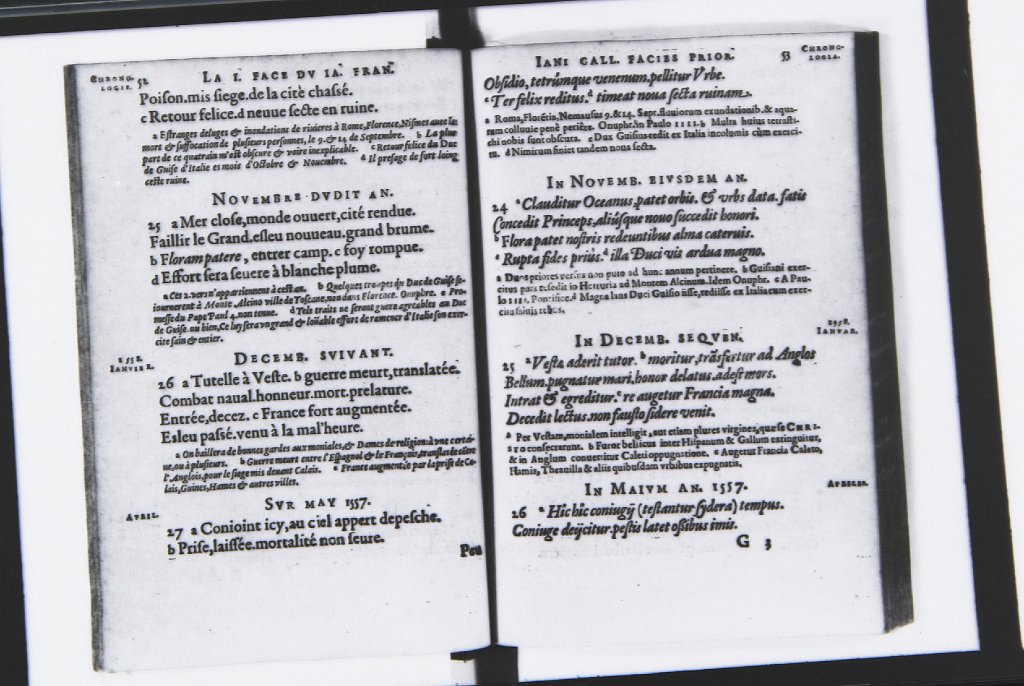 CHRONO-
LOGIE.
52
LA I. FACE DV IA. FRAN.
Poiſon.mis ſiege.de la citè chaſsé.
c Retour felice.d neuue ſecte en ruine.
a Eſtranges deluges & inondations de riuieres à Rome,Florence,Niſmes auec la
mort & ſuffocation de pluſieurs perſonnes, le 9.& 14 de Septembre. b La plus
part de ce quatrain m'eſt obſcure & voire inexplicable. c Retour felice du Duc
de Guiſe d'Italie es mois d'Octobre & Nouembre. d Il preſage de fort loing
ceſte ruine.
NOVEMBRE DVDIT AN.
25 a Mer cloſe,monde ouuert,cité rendue.
Faillir le Grand.eſleu nouueau.grand brume.
b Floram patere, entrer camp. c foy rompue.
d Effort ſera ſeuere à blanche plume.
a Ces 2.vers n'appartienent à ceſt an. b Quelques troupes du Duc de Guiſe ſe-
iournerent à Monte Alcino ville de Toſcane,non dans Florence. Onuphre. c Pro-
meſſe du Pape Paul 4.non tenue. d Tels traits ne ſeront guere agreables au Duc
de Guiſe. ou bien,Ce luy ſera vn grand & loüable effort de ramener d'Italie ſon exer-
cite ſain & entier.
1558.
IANVIER.
DECEMB. SVIVANT.
26 a Tutelle à Veſte. b guerre meurt,tranſlatée.
Combat naual.honneur.mort.prelature.
Entrée,decez. c France fort augmentée.
Eſleu paſſé.venu à la mal'heure.
a On baillera de bonnes gardes aux moniales,& Dames de religion:à vne certai-
ne,ou à pluſieurs. b Guerre meurt entre l'Eſpagnol & le François,tranſlatée côtre
l'Anglois,pour le ſiege mis deuant Calais. c France augmentée par la priſe de Ca-
lais,Guines,Hames & autres villes.
AVRIL.
SVR MAY 1557.
27 a Conioint icy,au ciel appert depeſche.
b Priſe,laiſſée.mortalité non ſeure.
Peu
IANI GALL. FACIES PRIOR.
53
CHRONO-
LOGIA.
Obſidio, tetrúmque venenum.pellitur Vrbe.
c Ter felix reditus. d timeat noua ſecta ruinam.
a Roma,Florētia,Nemauſus 9.& 14. Sept.fluuiorum exundationib.& aqua-
rum colluuie penè periere. Onuphr.in Paulo IIII. b Multa huius tetraſti-
chi nobis ſunt obſcura. c Dux Guiſius redit ex Italia incolumis cùm exerci-
tu. d Nimirum finiet tandem noua ſecta.
IN NOVEMB. EIVSDEM AN.
24 a Clauditur Oceanus,patet orbis. & vrbs data. fatis
Concedit Princeps,aliúſque nouo ſuccedit honori.
b Flora patet noſtris redeuntibus alma cateruis.
c Rupta fides priùs. d illa Duci vis ardua magno.
a Duos priores verſus non puto ad hunc annum pertinere. b Guiſiani exer-
citus pars reſedit in Hetruria ad Montem Alcinum. Idem Onuphr. c A Pau-
lo IIII. Pontifice. d Magna laus Duci Guiſio iſſe,rediiſſe ex Italia cum exer-
citu ſaluis rebus.
1958.
IANVAR.
IN DECEMB. SEQVEN.
25 a Veſtæ aderit tutor. b moritur,trāsfertur ad Anglos
Bellum.pugnatur mari.honor delatus.adeſt mors.
Intrat & egreditur. c re augetur Francia magna.
Decedit lectus.non fauſto ſidere venit.
a Per Veſtam,monialem intelligit, aut etiam plures virgines,quæ ſe CHRI-
STO conſecrarunt. b Furor bellicus inter Hiſpanum & Gallum extinguitur,
& in Anglum conuertitur Caleti oppugnatione. c Augetur Francia Caleto,
Hamis, Theauilla & aliis quibuſdam vrbibus expugnatis.
APRILIS.
IN MAIVM AN. 1557.
26 a Hic hic coniugij (teſtantur ſydera) tempus.
Coniuge deijcitur.peſtis latet oſſibus imis.
G 3